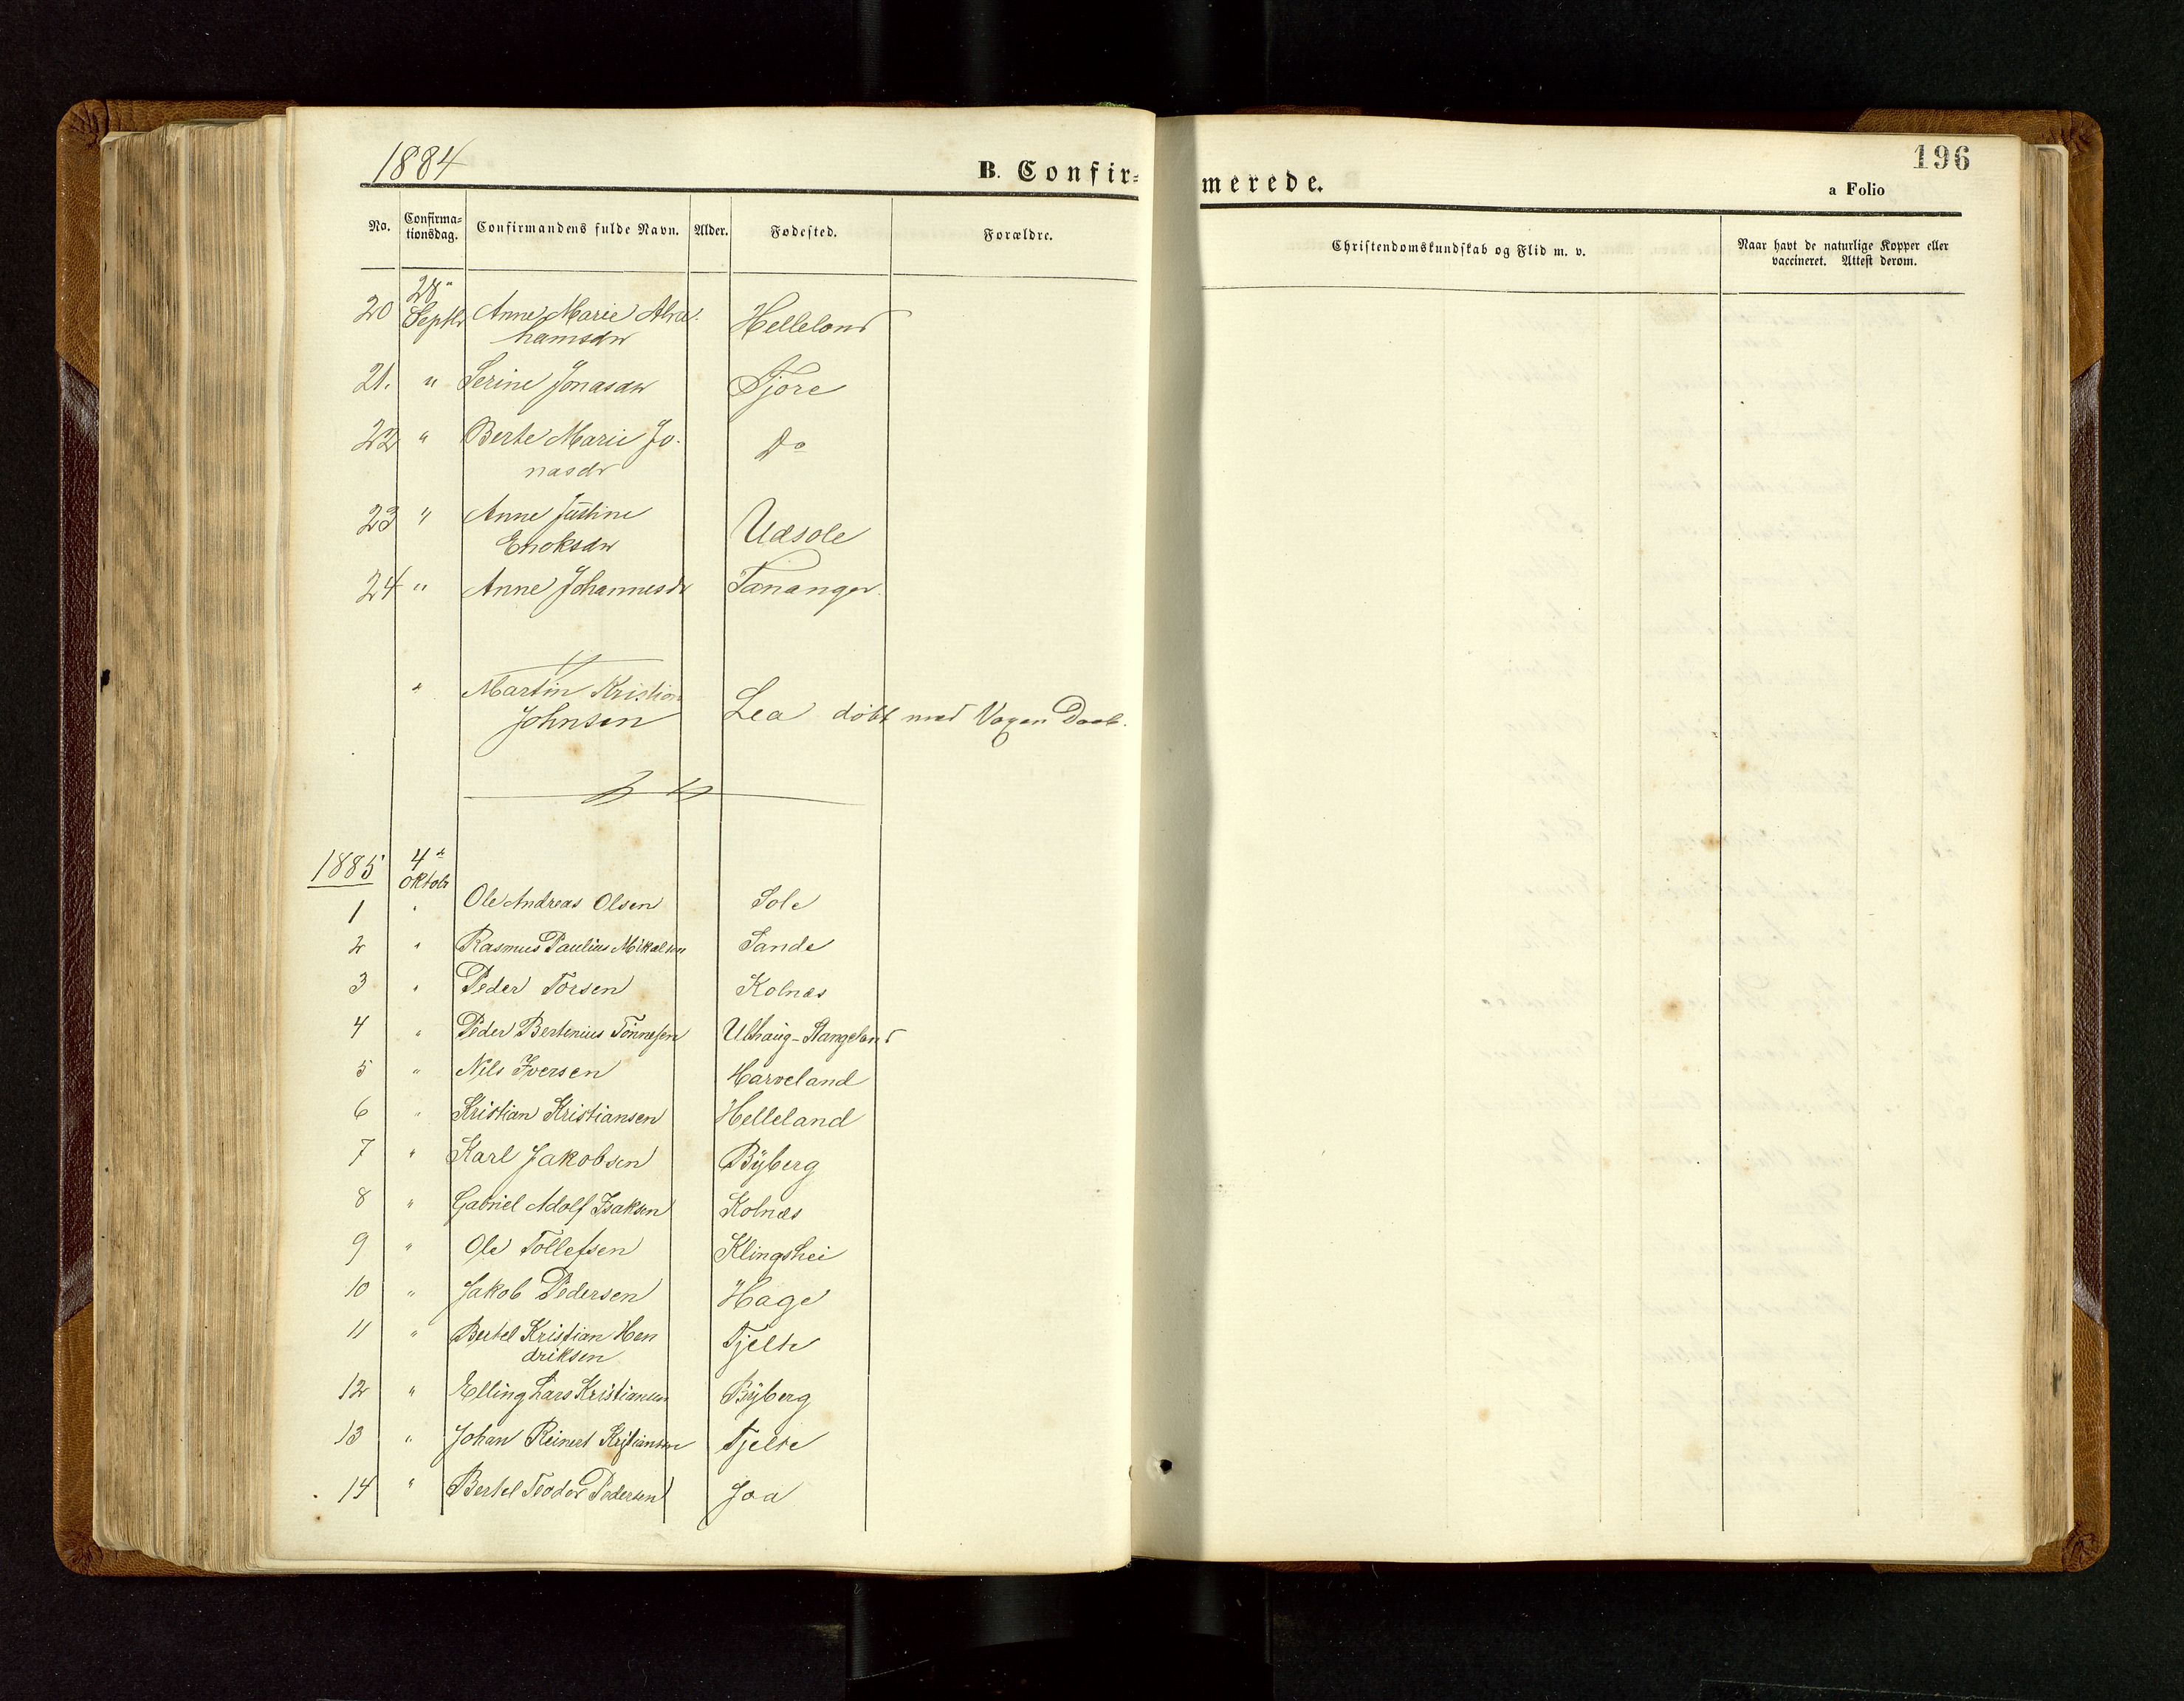 1884
B. Confir-
merede.
196
a Folio
No. Confirma-
tionsdag. Confirmandens fulde Navn. Alder. Fødested. Forældre.
Christendomskundskab og Flid m. v.
Naar havt de naturlige Kopper eller
vaccineret. Attest derom.
28"
20 Septbr Anne Marie Abra- Helleland
hamsdr
21. " Serine Jonasdr Tjore
22 " Berte Marie Jo- Do
nasdr
23 " Anne Justine
Enoksdr Udsole
24 " Anne Johannesdr Tananger
" Martin Kristian
Johnsen Lea døbt med Voxen Daab.
1885 4de
Oktob
1 " Ole Andreas Olsen Sole
2 " Rasmus Paulius Mikalsen Sande
3 " Peder Torsen Kolnæs
4 " Peder Bertinius Tønnesen Ulhaug-Stangeland
5 " Nils Iversen Harveland
6 " Kristian Kristiansen Helleland
7 " Karl Jakobsen Byberg
8 " Gabriel Adolf Isaksen Kolnæs
9 " Ole Tollefsen Klingshei
10 " Jakob Pedersen Hage
11 " Bertel Kristian Hen Tjelte
driksen
12 " Elling Lars Kristiansen Byberg
13 " Johan Reinert Kristiansen Tjelte
14 " Bertel Teodor Pedersen Joa